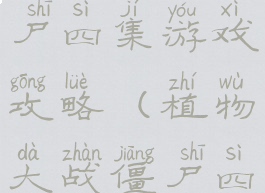 shī sì jí yóu xì
尸四集游戏
gōng lüè zhí wù
攻略（植物
dà zhàn jiāng shī sì
大战僵尸四